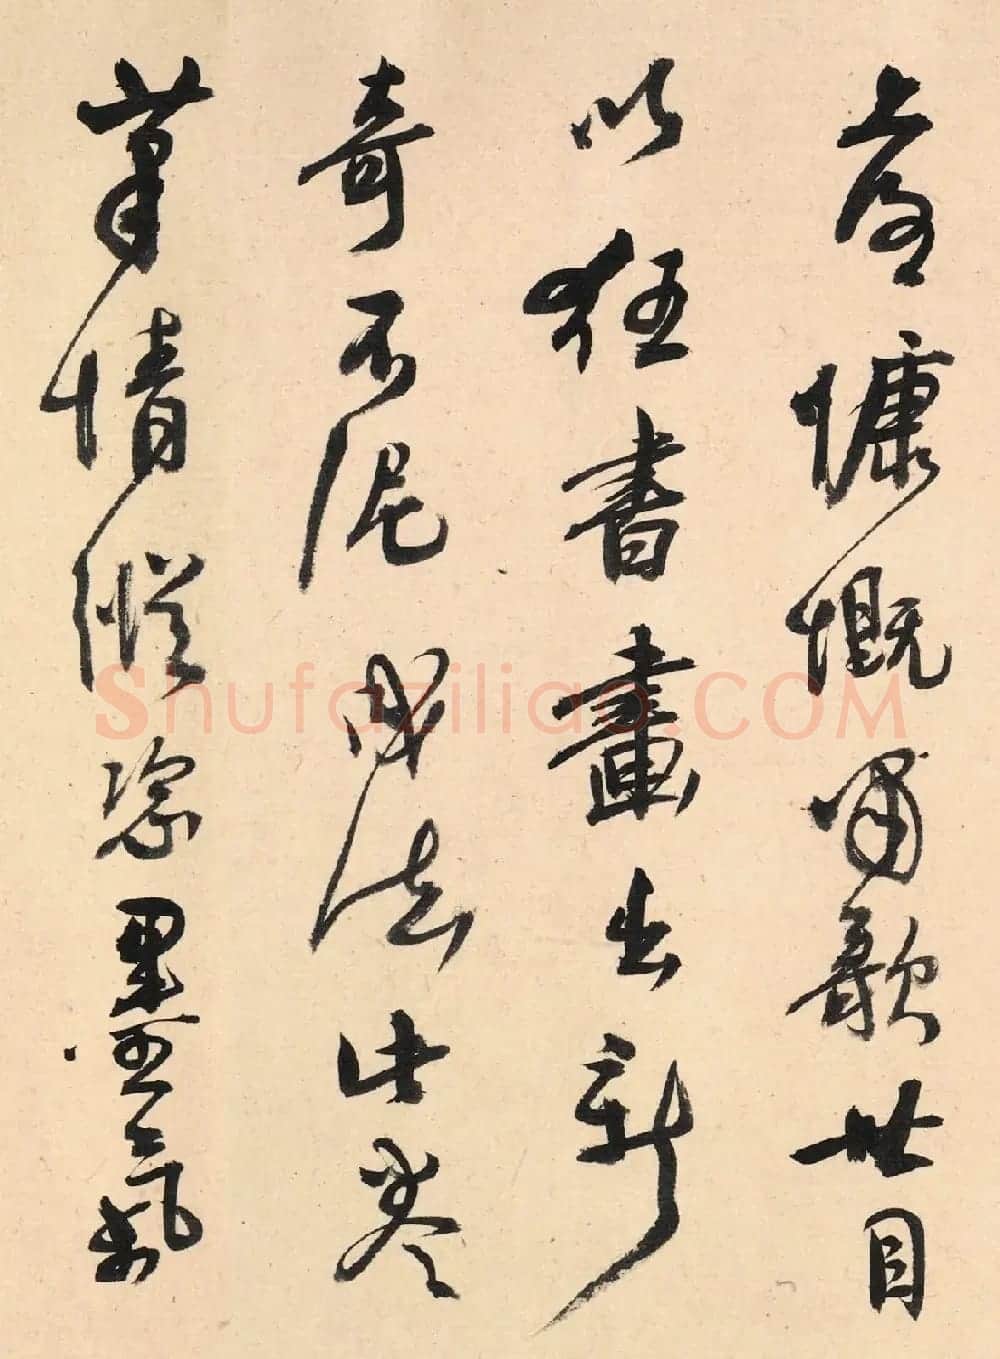 慷慨嘯歌世目
以狂書畫出新
奇不泥成法此卷
筆情縱恣墨氣
Shufaziliao.COM